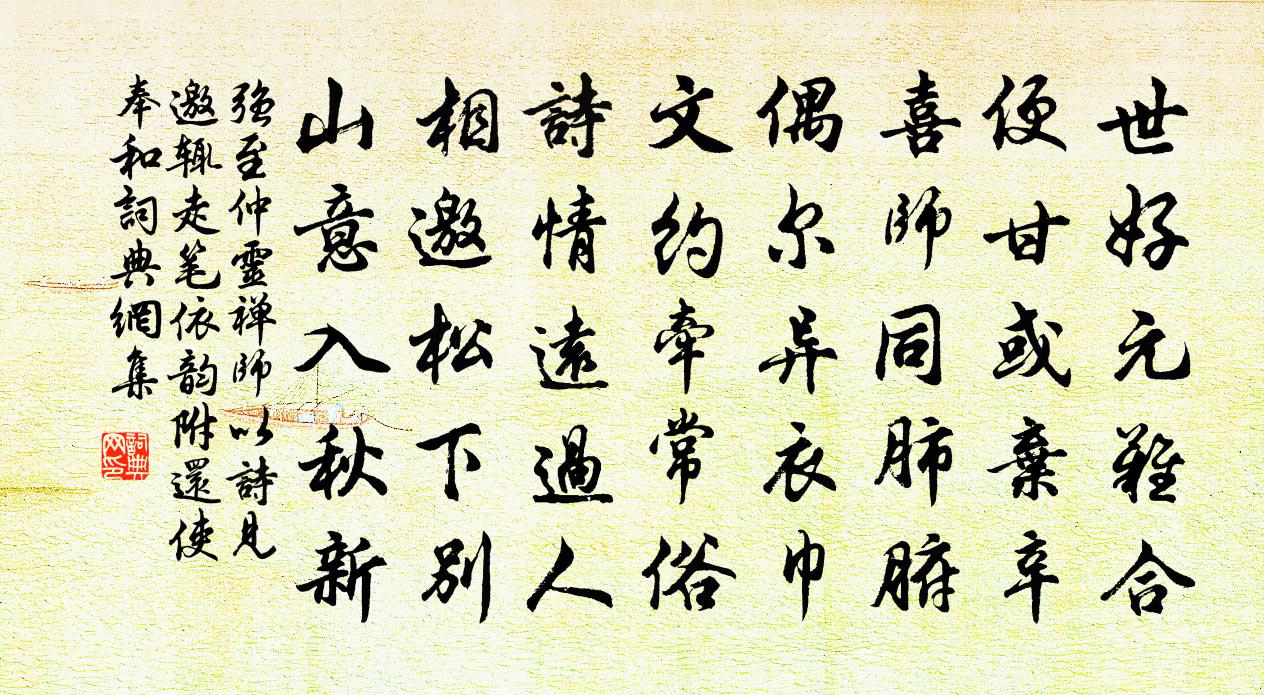 世好元難合
便甘或棄辛
喜師同肺腑
偶尔异衣巾
文約牽常俗
詩情遠過人
相邀松下別
山意入秋新
強至仲靈禅師以詩見
邀輒走笔依韵附還使
奉和詞典網集
詞典网印